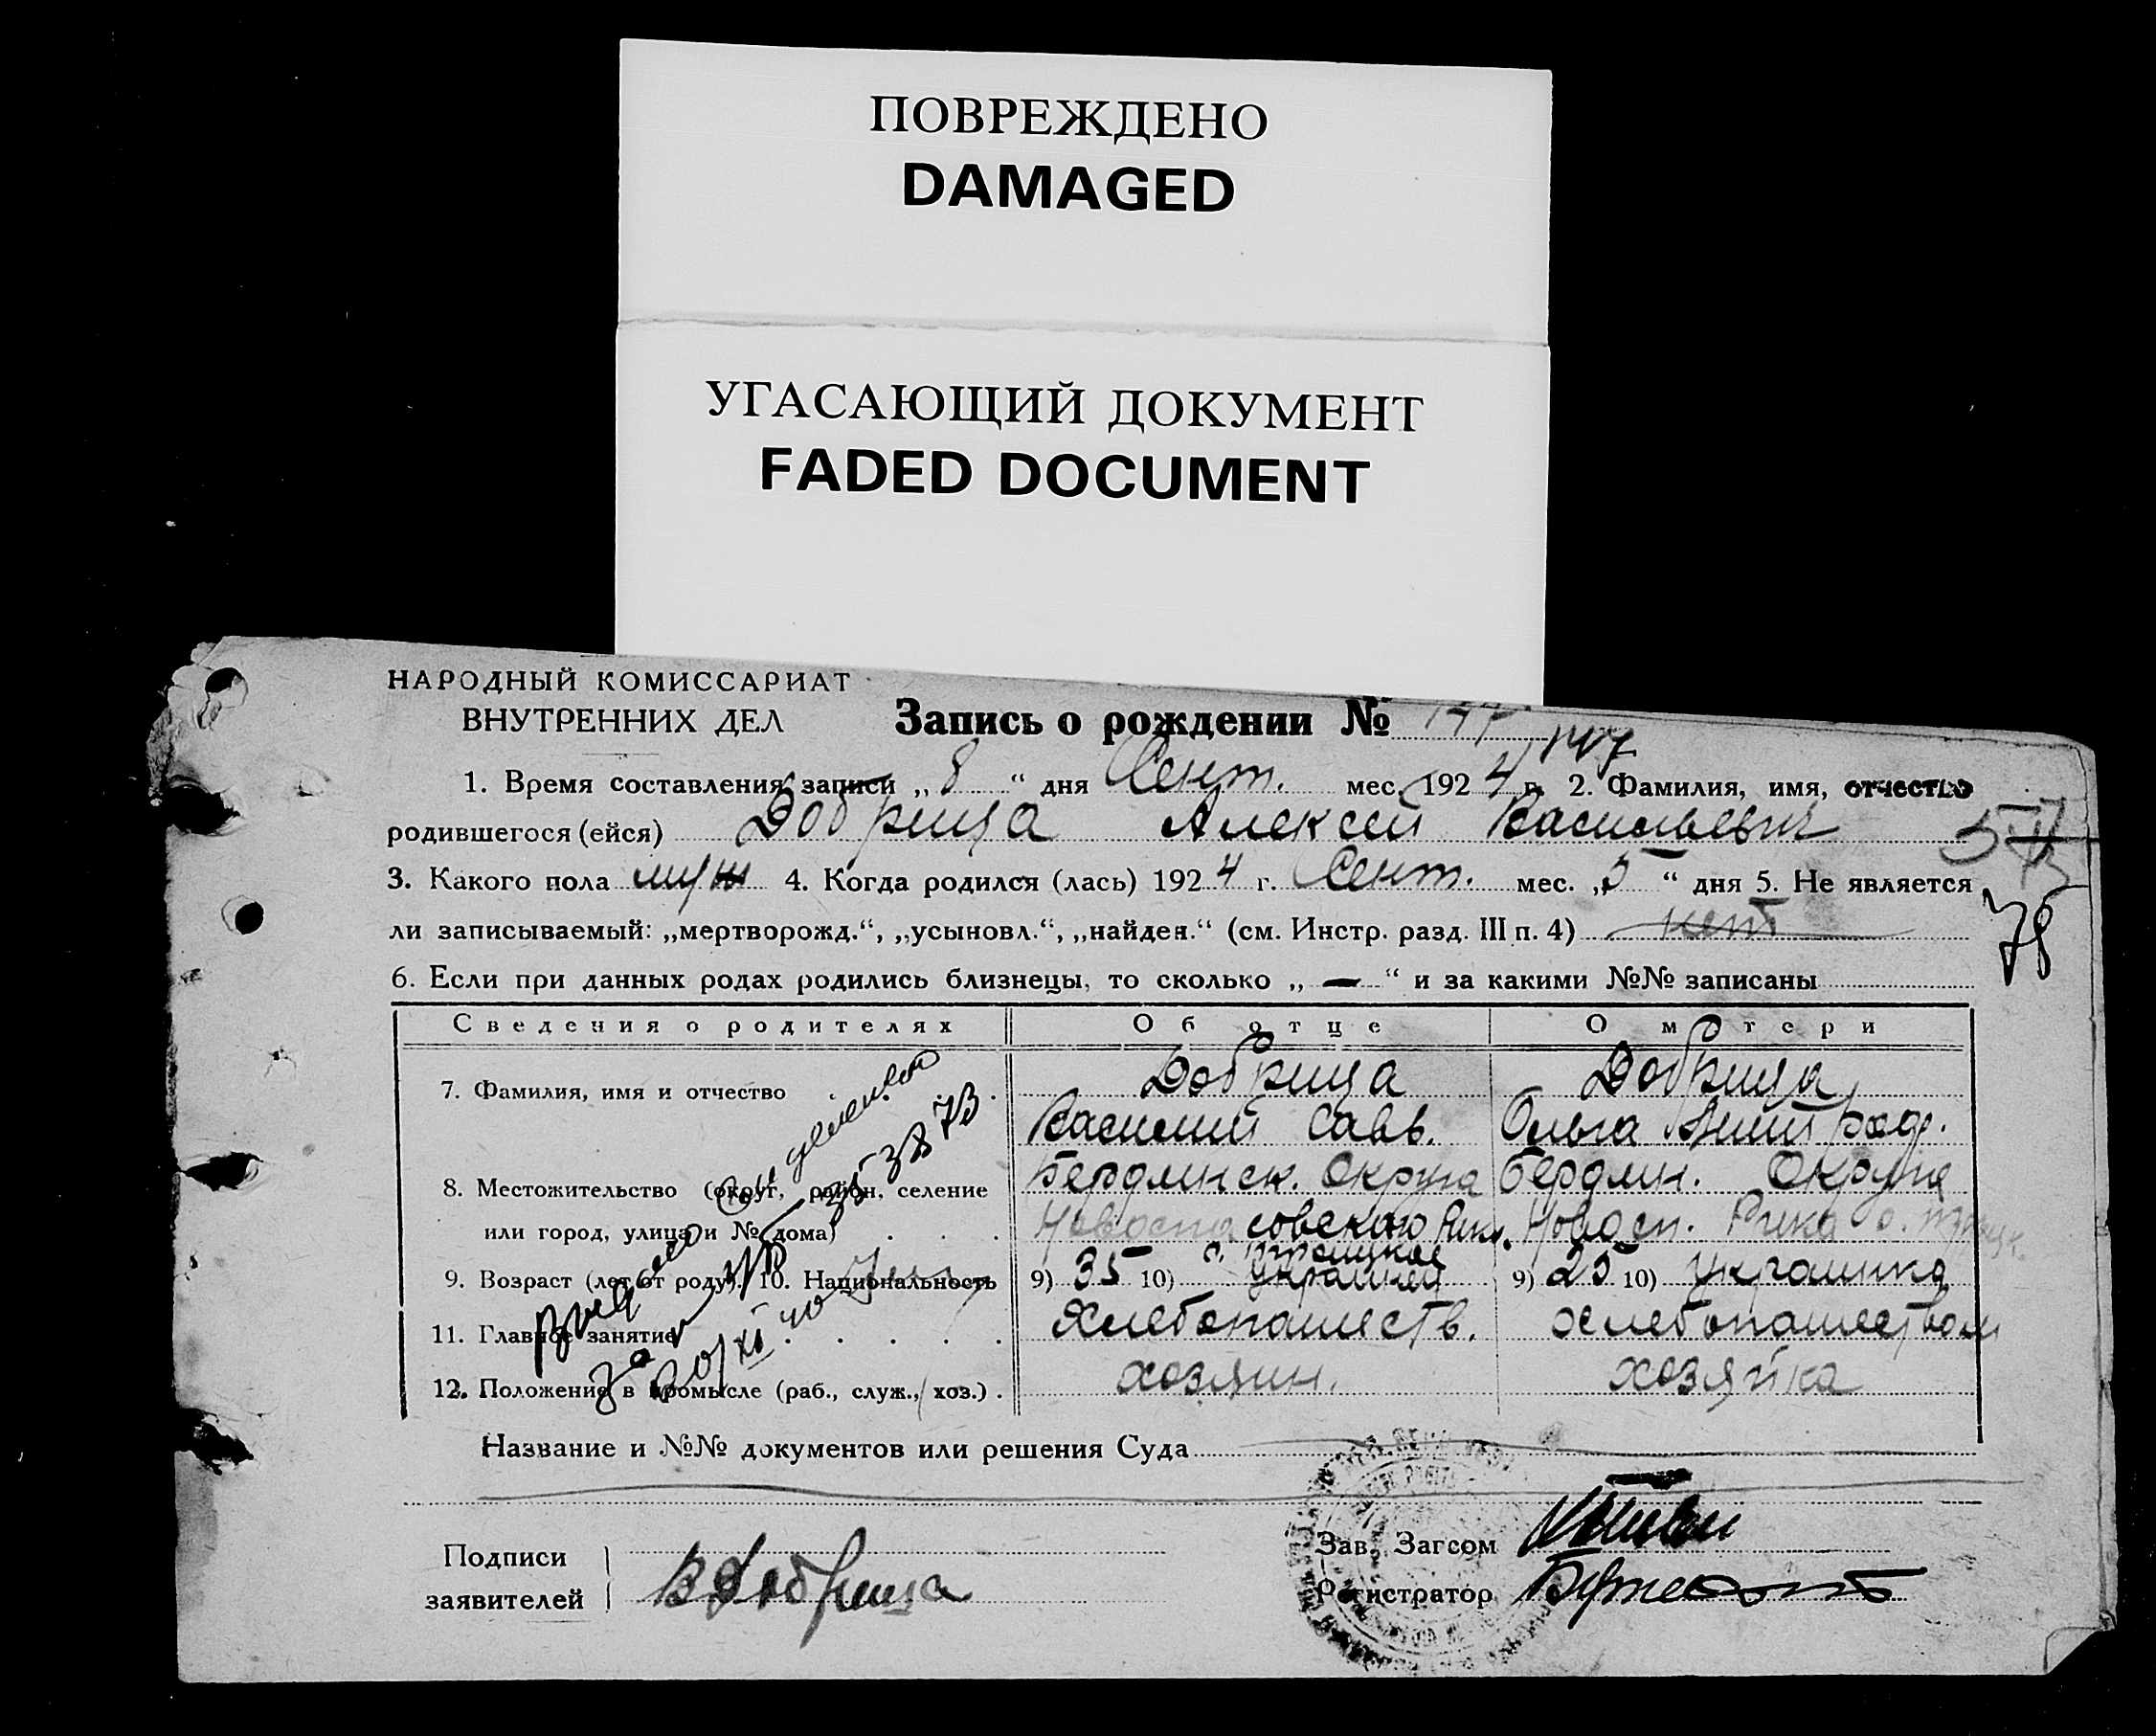 ПОВРЕЖДЕНО
DAMAGED
УГАСАЮЩИЙ ДОКУМЕНТ
FADED DOCUMENT
НАРОДНЫЙ КОМИССАРИАТ
ВНУТРЕННИХ ДЕЛ
Запись о рождении № 147
147
1. Время составления записи „8“ дня Сент. мес. 1924 г. 2. Фамилия, имя, отчество
родившегося (ейся) Добрица Алексей Васильевич
3. Какого пола муж 4. Когда родился (лась) 1924 г. Сент. мес. „5“ дня 5. Не является
78
ли записываемый: „мертворожд.“, „усыновл.“, „найден.“ (см. Инстр. разд. III п. 4) нет
6. Если при данных родах родились близнецы, то сколько „—“ и за какими №№ записаны
Сведения о родителях Об отце О матери
7. Фамилия, имя и отчество Добрица Добрица
Василий Савв. Ольга
8. Местожительство (округ, район, селение Бердянск. Округа Бердян. Округа
или город, улица и № дома) Новоспасовского Рика Новосп. Рика с.
с. Троицкое
9. Возраст (лет от роду). 10. Национальность 9) 35 10) украинец 9) 25 10) украинка
11. Главное занятие Хлебопашеств. хлебопашеством
12. Положение в промысле (раб., служ., хоз.) хозяин. хозяйка
Название и №№ документов или решения Суда
Подписи
заявителей
В Добрица
Зав. Загсом
Регистратор